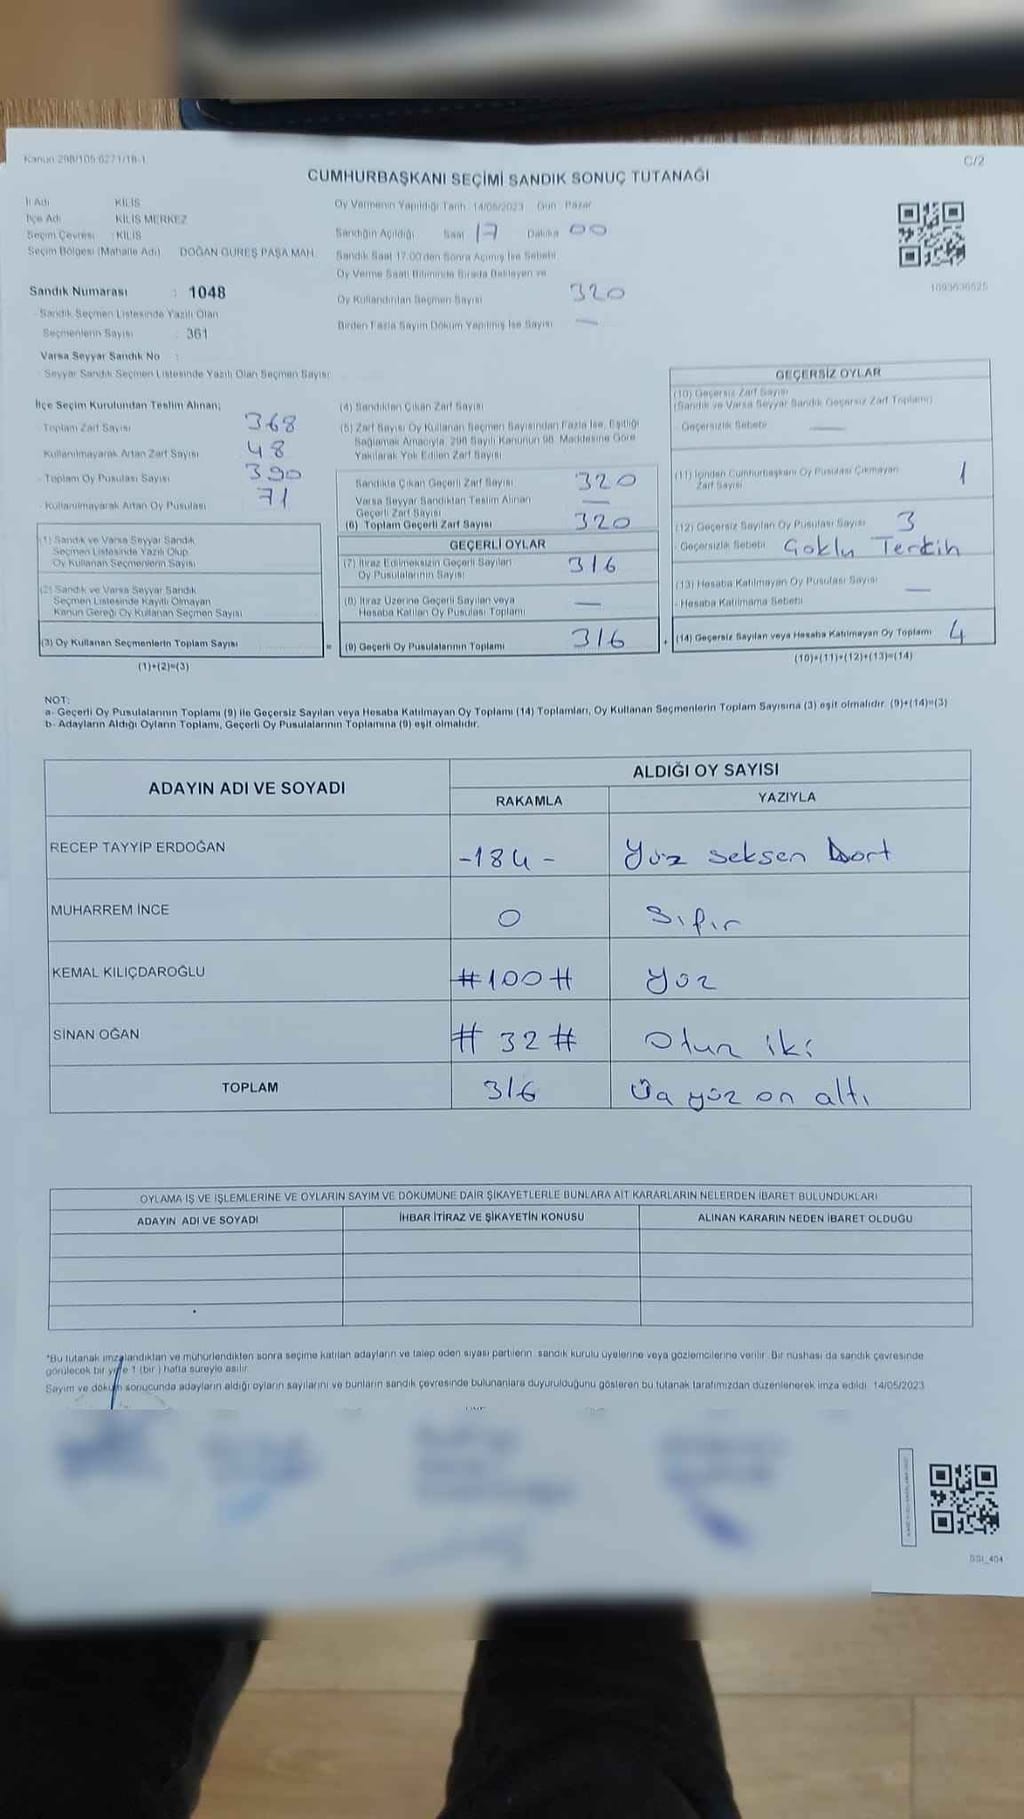 Kanun 298/105 6271/18-1
C/2
CUMHURBAŞKANI SEÇİMİ SANDIK SONUÇ TUTANAĞI
İl Adı : KİLİS
İlçe Adı : KİLİS MERKEZ
Seçim Çevresi : KİLİS
Seçim Bölgesi (Mahalle Adı) DOĞAN GÜREŞ PAŞA MAH.
Sandık Numarası : 1048
Sandık Seçmen Listesinde Yazılı Olan
Seçmenlerin Sayısı : 361
Varsa Seyyar Sandık No :
Seyyar Sandık Seçmen Listesinde Yazılı Olan Seçmen Sayısı:
Oy Vermenin Yapıldığı Tarih : 14/05/2023 Gün : Pazar
Sandığın Açıldığı Saat 17 Dakika 00
Sandık Saat 17.00'den Sonra Açılmış İse Sebebi
Oy Verme Saati Bitiminde Sırada Bekleyen ve
Oy Kullandırılan Seçmen Sayısı 320
Birden Fazla Sayım Döküm Yapılmış İse Sayısı —
1093636525
İlçe Seçim Kurulundan Teslim Alınan;
Toplam Zarf Sayısı 368
Kullanılmayarak Artan Zarf Sayısı 48
Toplam Oy Pusulası Sayısı 390
Kullanılmayarak Artan Oy Pusulası 71
(1) Sandık ve Varsa Seyyar Sandık
Seçmen Listesinde Yazılı Olup
Oy Kullanan Seçmenlerin Sayısı
(2) Sandık ve Varsa Seyyar Sandık
Seçmen Listesinde Kayıtlı Olmayan
Kanun Gereği Oy Kullanan Seçmen Sayısı
(3) Oy Kullanan Seçmenlerin Toplam Sayısı
(1)+(2)=(3)
(4) Sandıktan Çıkan Zarf Sayısı
(5) Zarf Sayısı Oy Kullanan Seçmen Sayısından Fazla İse, Eşitliği
Sağlamak Amacıyla, 298 Sayılı Kanunun 98. Maddesine Göre
Yakılarak Yok Edilen Zarf Sayısı
Sandıkta Çıkan Geçerli Zarf Sayısı 320
Varsa Seyyar Sandıktan Teslim Alınan
Geçerli Zarf Sayısı —
(6) Toplam Geçerli Zarf Sayısı 320
GEÇERLİ OYLAR
(7) İtiraz Edilmeksizin Geçerli Sayılan
Oy Pusulalarının Sayısı 316
(8) İtiraz Üzerine Geçerli Sayılan veya
Hesaba Katılan Oy Pusulası Toplamı —
= (9) Geçerli Oy Pusulalarının Toplamı 316 +
GEÇERSİZ OYLAR
(10) Geçersiz Zarf Sayısı
(Sandık ve Varsa Seyyar Sandık Geçersiz Zarf Toplamı)
- Geçersizlik Sebebi —
(11) İçinden Cumhurbaşkanı Oy Pusulası Çıkmayan
Zarf Sayısı 1
(12) Geçersiz Sayılan Oy Pusulası Sayısı 3
- Geçersizlik Sebebi Çoklu Tercih
(13) Hesaba Katılmayan Oy Pusulası Sayısı —
- Hesaba Katılmama Sebebi
(14) Geçersiz Sayılan veya Hesaba Katılmayan Oy Toplamı 4
(10)+(11)+(12)+(13)=(14)
NOT:
a- Geçerli Oy Pusulalarının Toplamı (9) ile Geçersiz Sayılan veya Hesaba Katılmayan Oy Toplamı (14) Toplamları, Oy Kullanan Seçmenlerin Toplam Sayısına (3) eşit olmalıdır. (9)+(14)=(3)
b- Adayların Aldığı Oyların Toplamı, Geçerli Oy Pusulalarının Toplamına (9) eşit olmalıdır.
ADAYIN ADI VE SOYADI
ALDIĞI OY SAYISI
RAKAMLA YAZIYLA
RECEP TAYYİP ERDOĞAN -184- Yüz seksen Dört
MUHARREM İNCE 0 Sıfır
KEMAL KILIÇDAROĞLU #100# yüz
SİNAN OĞAN # 32 # Otuz iki
TOPLAM 316 Üç yüz on altı
OYLAMA İŞ VE İŞLEMLERİNE VE OYLARIN SAYIM VE DÖKÜMÜNE DAİR ŞİKAYETLERLE BUNLARA AİT KARARLARIN NELERDEN İBARET BULUNDUKLARI
ADAYIN ADI VE SOYADI İHBAR İTİRAZ VE ŞİKAYETİN KONUSU ALINAN KARARIN NEDEN İBARET OLDUĞU
*Bu tutanak imzalandıktan ve mühürlendikten sonra seçime katılan adayların ve talep eden siyasi partilerin sandık kurulu üyelerine veya gözlemcilerine verilir. Bir nüshası da sandık çevresinde
görülecek bir yere 1 (bir) hafta süreyle asılır.
Sayım ve döküm sonucunda adayların aldığı oyların sayılarını ve bunların sandık çevresinde bulunanlara duyurulduğunu gösteren bu tutanak tarafımızdan düzenlenerek imza edildi. 14/05/2023
SSI_404